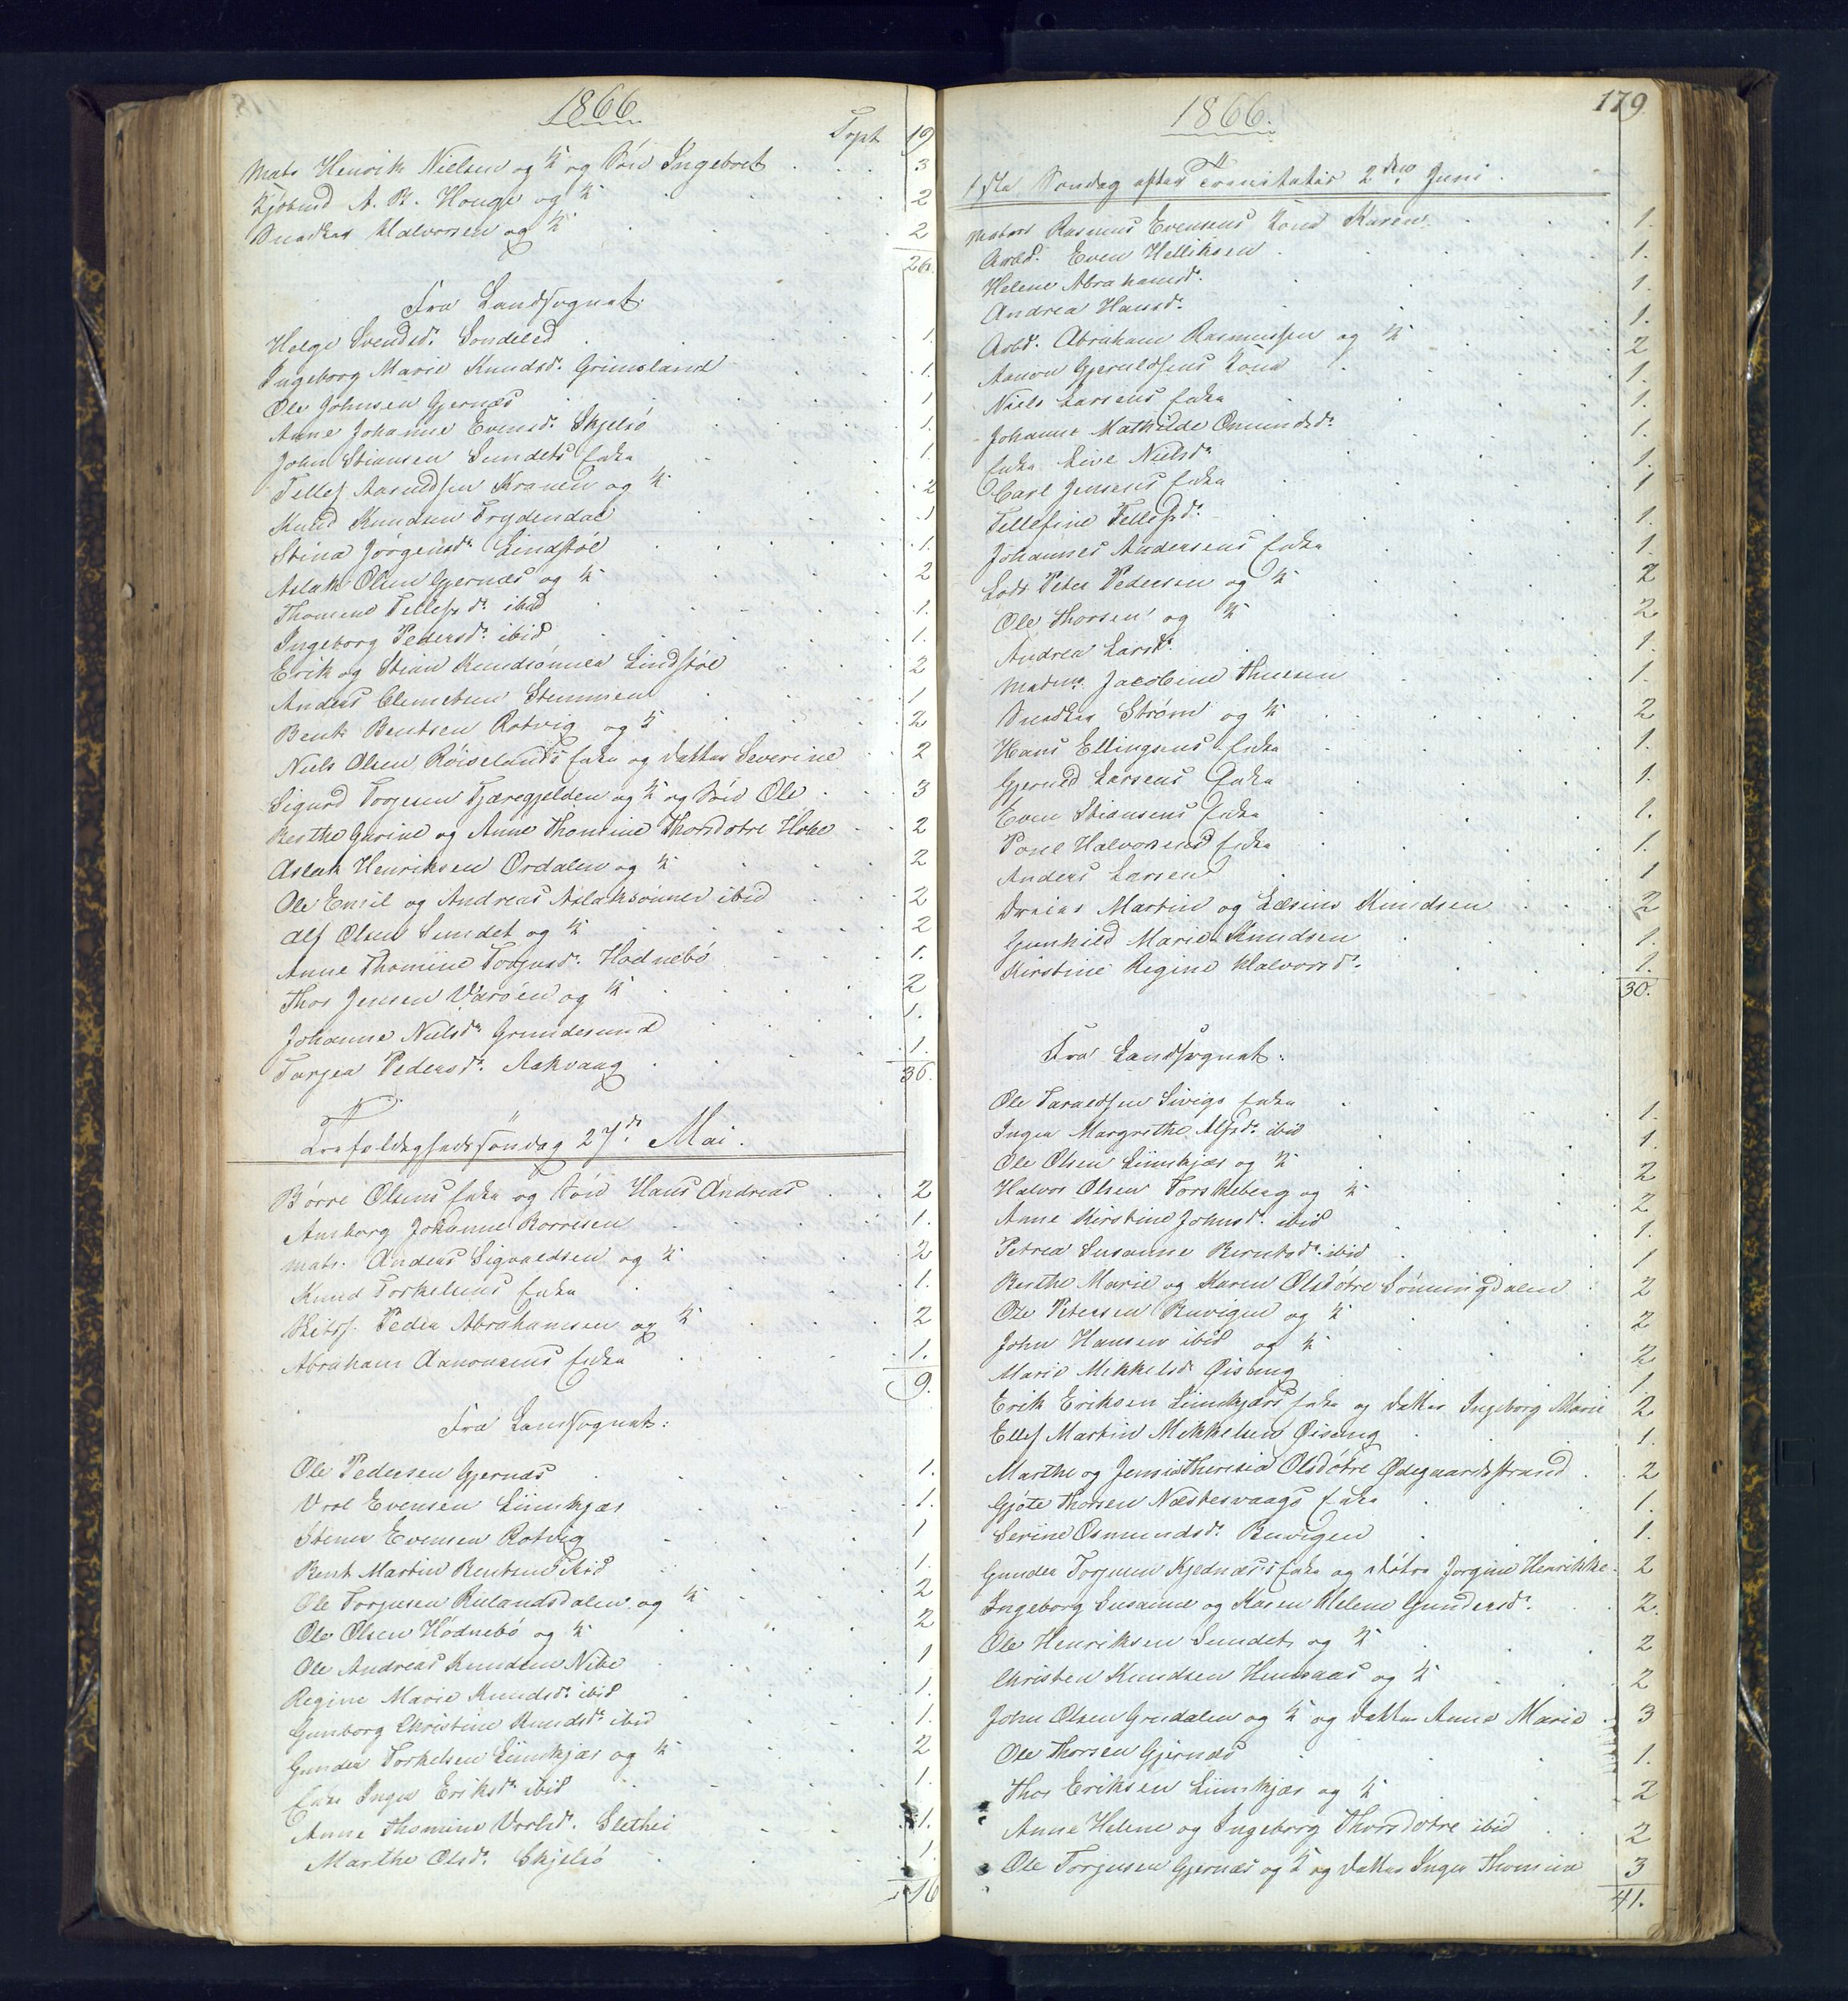 1866
Trpt 19
Matr Henrik Nielsen og K og Søn Ingebret 3
Kjøbmd A. B. Houge og K 2
Snedker Halvorsen og K 2
26.
Fra Landsognet:
Helge Svendsd. Søndeled 1.
Ingeborg Marie Knudsd. Grimsland 1.
Ole Johnsen Gjernæs 1
Anne Johanne Evensd. Skjelsö 1.
John Stiansen Sundets Enke 1.
Tellef Aanudsen Kranen og K 2
Knud Knudsen Trydendal 1
Stina Jörgensd. Lindstøl 1.
Aslak Olsen Gjernæs og K 2
Thomine Tellefsd. ibid 1.
Ingeborg Pedersd. ibid 1.
Erik og Stian Knudsønner Lindstøl 2
Anders Clemetsen Stemmen 1
Bent Bentsen Rotvig og K 2
Niels Olsen Röiselands Enke og datter Severine 2
Sigurd Torjesen Tjæregjelden og K og Søn Ole 3
Berthe Gurine og Anne Thomine Thorsdøtre Hope 2
Aslak Henriksen Ørdalen og K 2
Ole Emil og Andreas Aslaksönner ibid 2
Alf Olsen Sundet og K 2
Anne Thomine Torjusd. Hødnebö 1.
Thor Jensen Varöen og K 2
Johanne Nielsd. Grundesund 1.
Torjer Pedersd. Aakvaag 1.
36.
Trefoldighedssöndag 27d. Mai.
Börre Olsens Enke og Søn Hans Andreas 2
Amborg Johanne Borresen 1.
Matr. Anders Sigvaldsen og K 2
Knud Torkelsens Enke 1.
Skibsf. Peder Abrahamsen og K 2
Abraham Aanonsens Enke 1.
9.
Fra Landsognet:
Ole Pedersen Gjernæs 1.
Vrol Evensen Liimkjær 1.
Stener Evensen Rotvig 1
Bent Martin Bentsen ibid 1.
Ole Torjusen Rulandsdalen og K 2
Ole Olsen Hødnebö og K 2
Ole Andreas Knudsen Nibe 1
Regine Marie Knudsd. ibid 1.
Gunborg Christine Knudsd. ibid 1.
Gunder Torkelsen Liimkjær og K 2
Enke Inger Eriksd. ibid 1.
Anne Thomine Vrolsd. Slethei 1.
Marthe Olsd. Skjelsö 1.
16
1866.
179
1ste Søndag efter Trinitatis 2den Juni.
Matros Rasmus Evensens Kone Karen 1.
Arbd. Even Helliksen 1.
Helene Abrahamsd. 1.
Andrea Hansd. 1.
Arbd. Abraham Rasmussen og K 2
Aanon Gjeruldsens Kone 1.
Niels Larsens Enke 1.
Johanne Mathilde Omundsd. 1.
Enke Live Nielsd. 1.
Carl Jensens Enke 1
Tellefine Tellefsd. 1.
Johannes Andersens Enke 1.
Lods Peter Pedersen og K 2
Ole Thorsen og K 2
Andrea Larsd. 1.
Madm. Jacobine Thuesen 1.
Snedker Strøm og K 2
Hans Ellingsens Enke 1.
Gjeruld Larsens Enke 1.
Even Stiansens Enke 1.
Poul Halvorsens Enke 1.
Anders Larsen 1
Martin og Knudsen 2
Gunhild Marie Knudsen 1.
Kirstine Regine Halvorsd. 1.
30.
Fra Landsognet:
Ole Taraldsen Sivigs Enke 1.
Inger Margrethe Alfsd. ibid 1.
Ole Olsen Liimkjær og K 2
Halvor Olsen Torskeberg og K 2
Anne Kirstine Johnsd. ibid 1.
Petrea Susanne Berntsd. ibid 1
Berthe Marie og Karen Olsdötre Sönningdalen 2
Ole Petersen Buvigen og K 2
John Hansen ibid og K 2
Marie Mikkelsd. Øiseng 1.
Erik Eriksen Liimkjærs Enke og datter Ingeborg Marie 2
Ellef Martin Mikkelsen Øiseng 1.
Marthe og Jensine Theresia Olsdötre Ødegaardsstrand 2
Gjöte Thorsen Næsbesvaags Enke 1.
Serine Osmundsd. Buvigen 1.
Gunder Torjusen Kjednæss Enke og døtre Jorgine Henrikke 2
Ingeborg Susanne og Karen Helene Gundersd. 2.
Ole Henriksen Sundet og K 2
Christen Knudsen Humaas og K 2
John Olsen Grudalen og K og datter Anne Marie 3
Ole Thorsen Gjernæs 1.
Thor Eriksen Liimkjær og K 2
Anne Helene og Ingeborg Thorsdøtre ibid 2
Ole Torjusen Gjernæs og K og datter Inger Thomine 3
41.